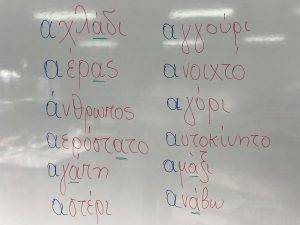 αχλάδι
αέρας
άνθρωπος
αερόστατο
αγάπη
αστέρι
αγγούρι
ανοιχτό
αγόρι
αυτοκίνητο
αμάξι
ανάβω